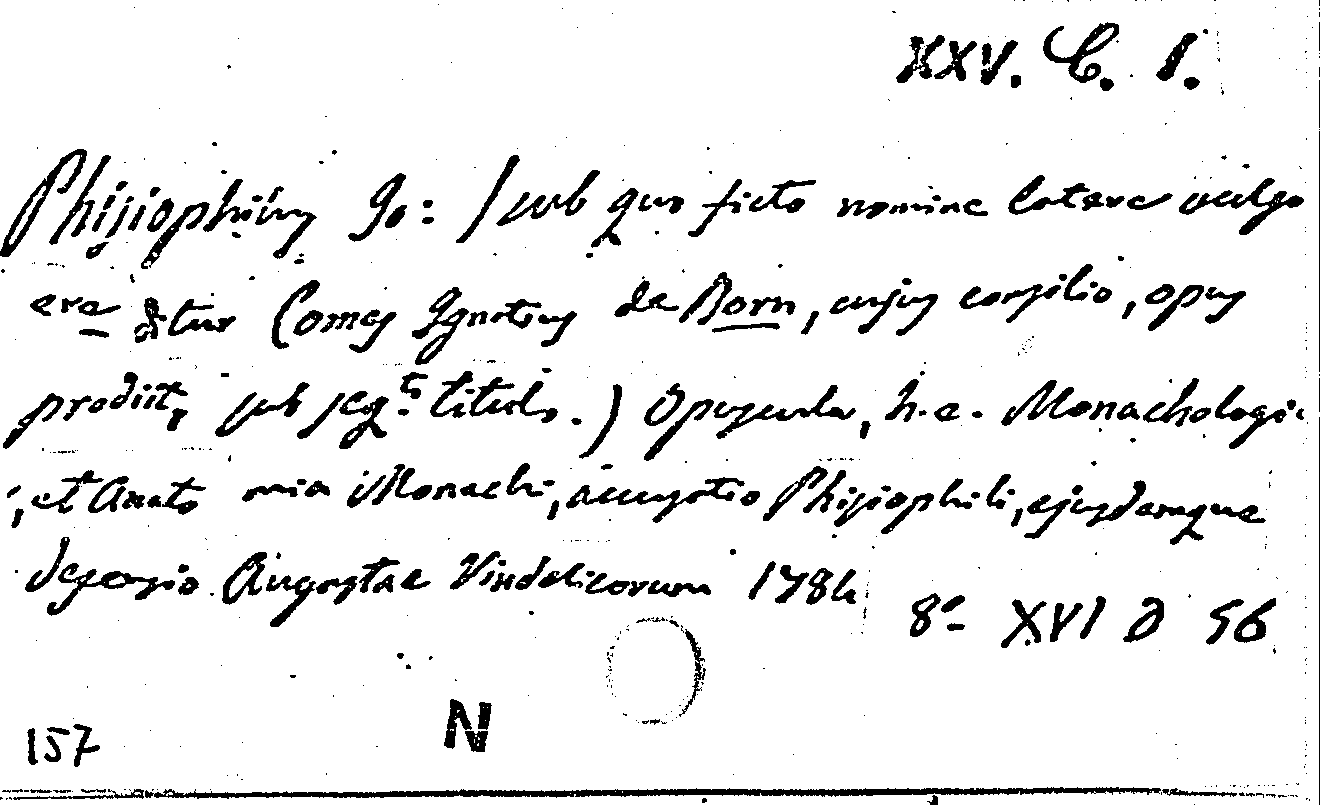 XXV. C. 1.
Phisiophilus Jo: /sub quo ficto nomine latere vulgo
creditur Comes Ignatius de Born, cujus consilio, opus
prodiit, sub seq. titulo.) Opuscula, h. e. Monachologia
, et Anatomia Monachi, accusatio Phisiophili, ejusdemque
defensio Augustae Vindelicorum 1784
8º XVI D 56
157
N